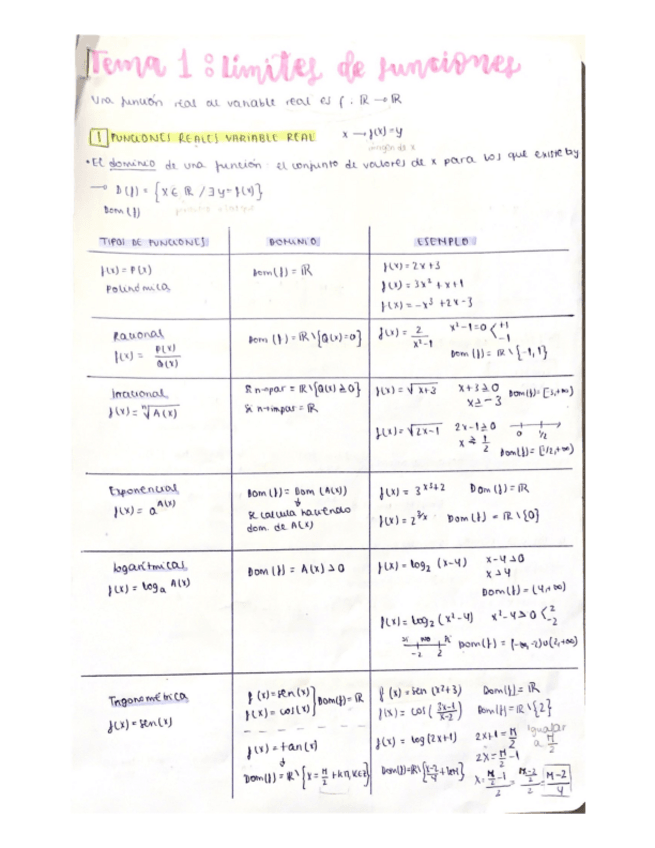 Tema 1: límites de funciones
Una función real de variable real es f: ℝ → ℝ
1 FUNCIONES REALES VARIABLE REAL x → f(x)=y
imagen de x
• El dominio de una función: el conjunto de valores de x para los que existe y
→ D(f) = {x ∈ ℝ / ∃ y=f(x)}
Dom(f)
TIPOS DE FUNCIONES DOMINIO EJEMPLO
f(x)=P(x)
Polinómica
Dom(f)=ℝ
f(x)=2x+3
f(x)=3x²+x+1
f(x)=-x³+2x-3
Racional
f(x)= P(x)/Q(x)
Dom(f)=ℝ\{Q(x)=0}
f(x)= 2/(x²-1) x²-1=0 < +1 -1
Dom(f)=ℝ\{-1,1}
Irracional
f(x)=ⁿ√A(x)
Si n→par = ℝ\{Q(x)≥0}
Si n→impar = ℝ
f(x)=√x+3 x+3≥0 Dom(f)=[-3,+∞)
x≥-3
f(x)=√2x-1 2x-1≥0
x≥ 1/2 0 1/2
Dom(f)=[1/2,+∞)
Exponencial
f(x)=a^A(x)
Dom(f)=Dom(A(x))
↓
Se calcula haciendo
dom. de A(x)
f(x)=3^x²+2 Dom(f)=ℝ
f(x)=2^3/x Dom(f)=ℝ\{0}
logarítmicas
f(x)=logₐ A(x)
Dom(f)=A(x)>0
f(x)=log₂(x-4) x-4>0
x>4
Dom(f)=(4,+∞)
f(x)=log₂(x²-4) x²-4>0 < 2 -2
si no si
-2 2 Dom(f)=(-∞,-2)∪(2,+∞)
Trigonométrica
f(x)=sen(x)
f(x)=sen(x)
f(x)=cos(x) } Dom(f)=ℝ
f(x)=tan(x)
↓
Dom(f)=ℝ\{x=π/2+kπ, k∈ℤ}
f(x)=sen(x²+3) Dom(f)=ℝ
f(x)=cos((3x-1)/(x-2)) Dom(f)=ℝ\{2}
f(x)=tag(2x+1) 2x+1=π/2 igualar a π/2
2x=π/2-1
x=(π/2-1)/2=((π-2)/2)/2=(π-2)/4